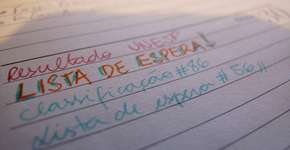 Resultado UNESP
LISTA DE ESPERA!
Classificação #86
Lista de espera #56